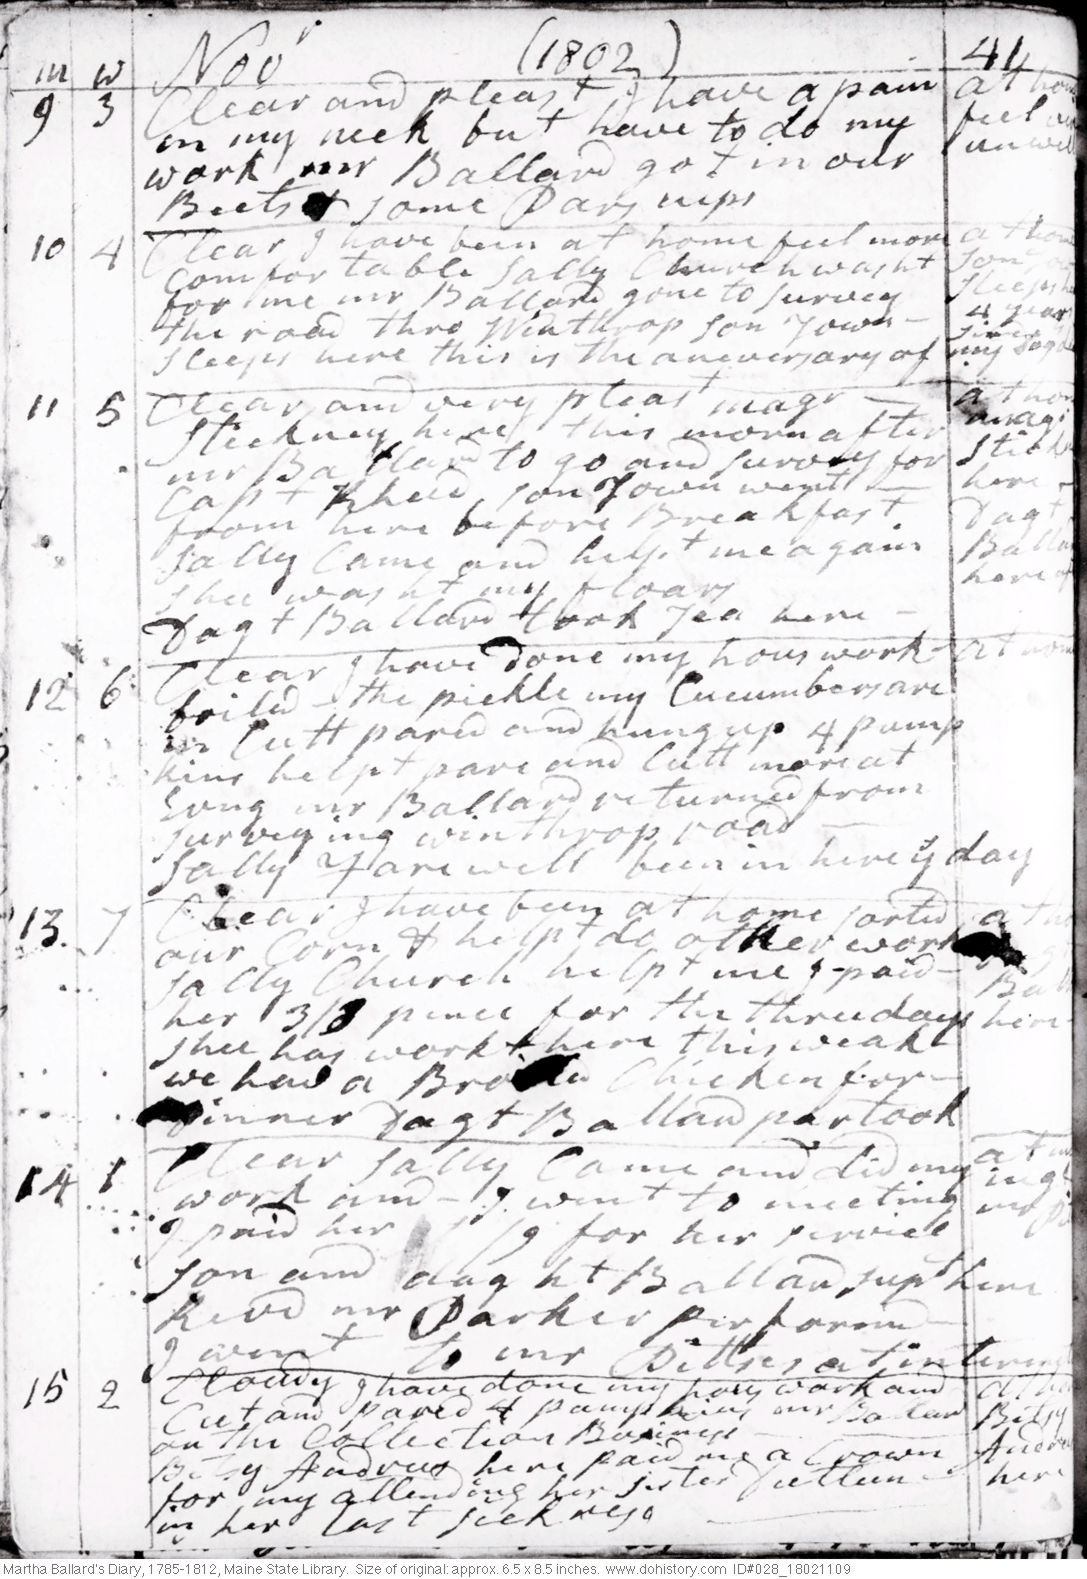 m w Nov<sup>r</sup> (1802) 41
9 3 Clear and pleast I have a pain at hom
in my neck but have to do my feel
work mr Ballard got in our unwel
Beets & some Pars nips
10 4 Clear I have been at home feel more at home
Comfortable Sally Church washt Son
for me mr Ballard gone to survey sleeps
the road thro Winthrop Son Town – 4 year
sleeps here this is the aneversary of my
11 5 Clear and very pleast magr – at hom
Stickney here this morn after magr
mr Ballard to go and survey for Stick
Capt Son Town went – here –
from here before Breakfast Dagt
Sally Came and helpt me again Balla
shee washt my floars here
Dagt Ballard took Tea here –
12 6 Clear I have done my hous work – at hom
boiled the pickle my Cucumbers are
in Cutt pared and hung up 4 pump
kins helpt pare and Cutt more at
Evng mr Ballard returned from
surveying winthrop road –
Sally Farewell been in here y day
13 7 Clear I have been at home sorted at ho
our Corn & helpt do other work
Sally Church helpt me I paid – Ball
her 3/ pence for the three days here
shee has workt here this weak
we had a Broild Chicken for –
Dinner Dagt Ballard partook
14 1 Clear Sally Came and did my at
work and – I went to meeting ing
I paid her 1/9 for her service mr
Son and daght Ballard supt here
Revd mr Parker performd –
I went to mr Pittses at intervng
15 2 Cloudy I have done my hous work and at ho
Cut and pared 4 pumpkins mr Ballard Bitsy
on the Collection Business – Andrus
Bitsy Andrus here paid me a Crown here
for my attending her sister –
in her last sickness
Martha Ballard's Diary, 1785-1812, Maine State Library. Size of original: approx. 6.5 x 8.5 inches. www.dohistory.com ID#028_18021109